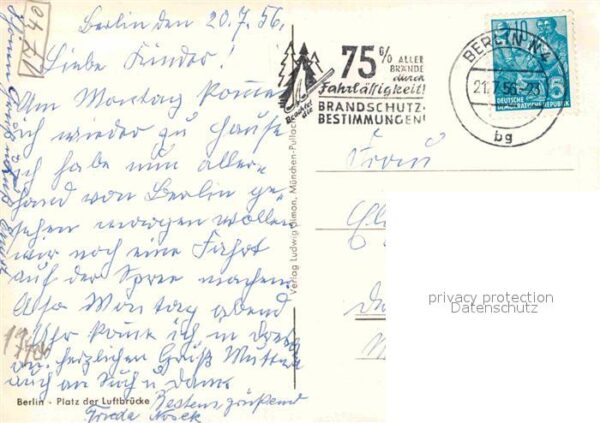 Berlin den 20.7.56.
Liebe Kinder!
Am Montag komme
ich wieder zu Hause
ich habe nun aller-
hand von Berlin ge
sehen morgen wollen
wir noch eine Fahrt
auf der Spree machen
Also Montag abend
Uhr komme ich in
an. herzlichen Gruß Mutter
auch an Euch u
Bestens grüßend
Frieda
1740
Berlin - Platz der Luftbrücke
Verlag Ludwig Simon, München-Pullach
75% ALLER
BRÄNDE
durch
Fahrlässigkeit!
Beachtet
die
BRANDSCHUTZ-
BESTIMMUNGEN!
BERLIN N 4
21.7.56
bg
10
5
DEUTSCHE
DEMOKRATISCHE REPUBLIK
Frau
privacy protection
Datenschutz